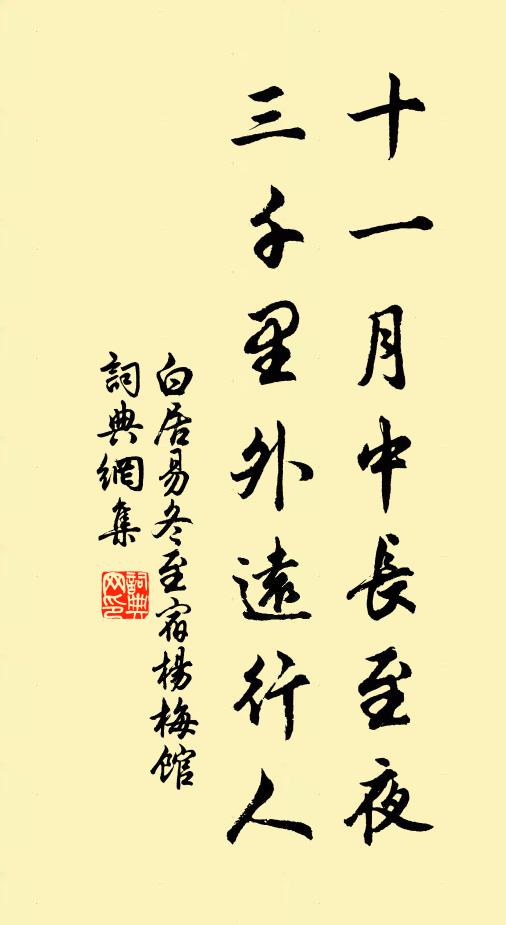 十一月中長至夜
三千里外遠行人
白居易冬至宿楊梅館
詞典網集
詞典网印